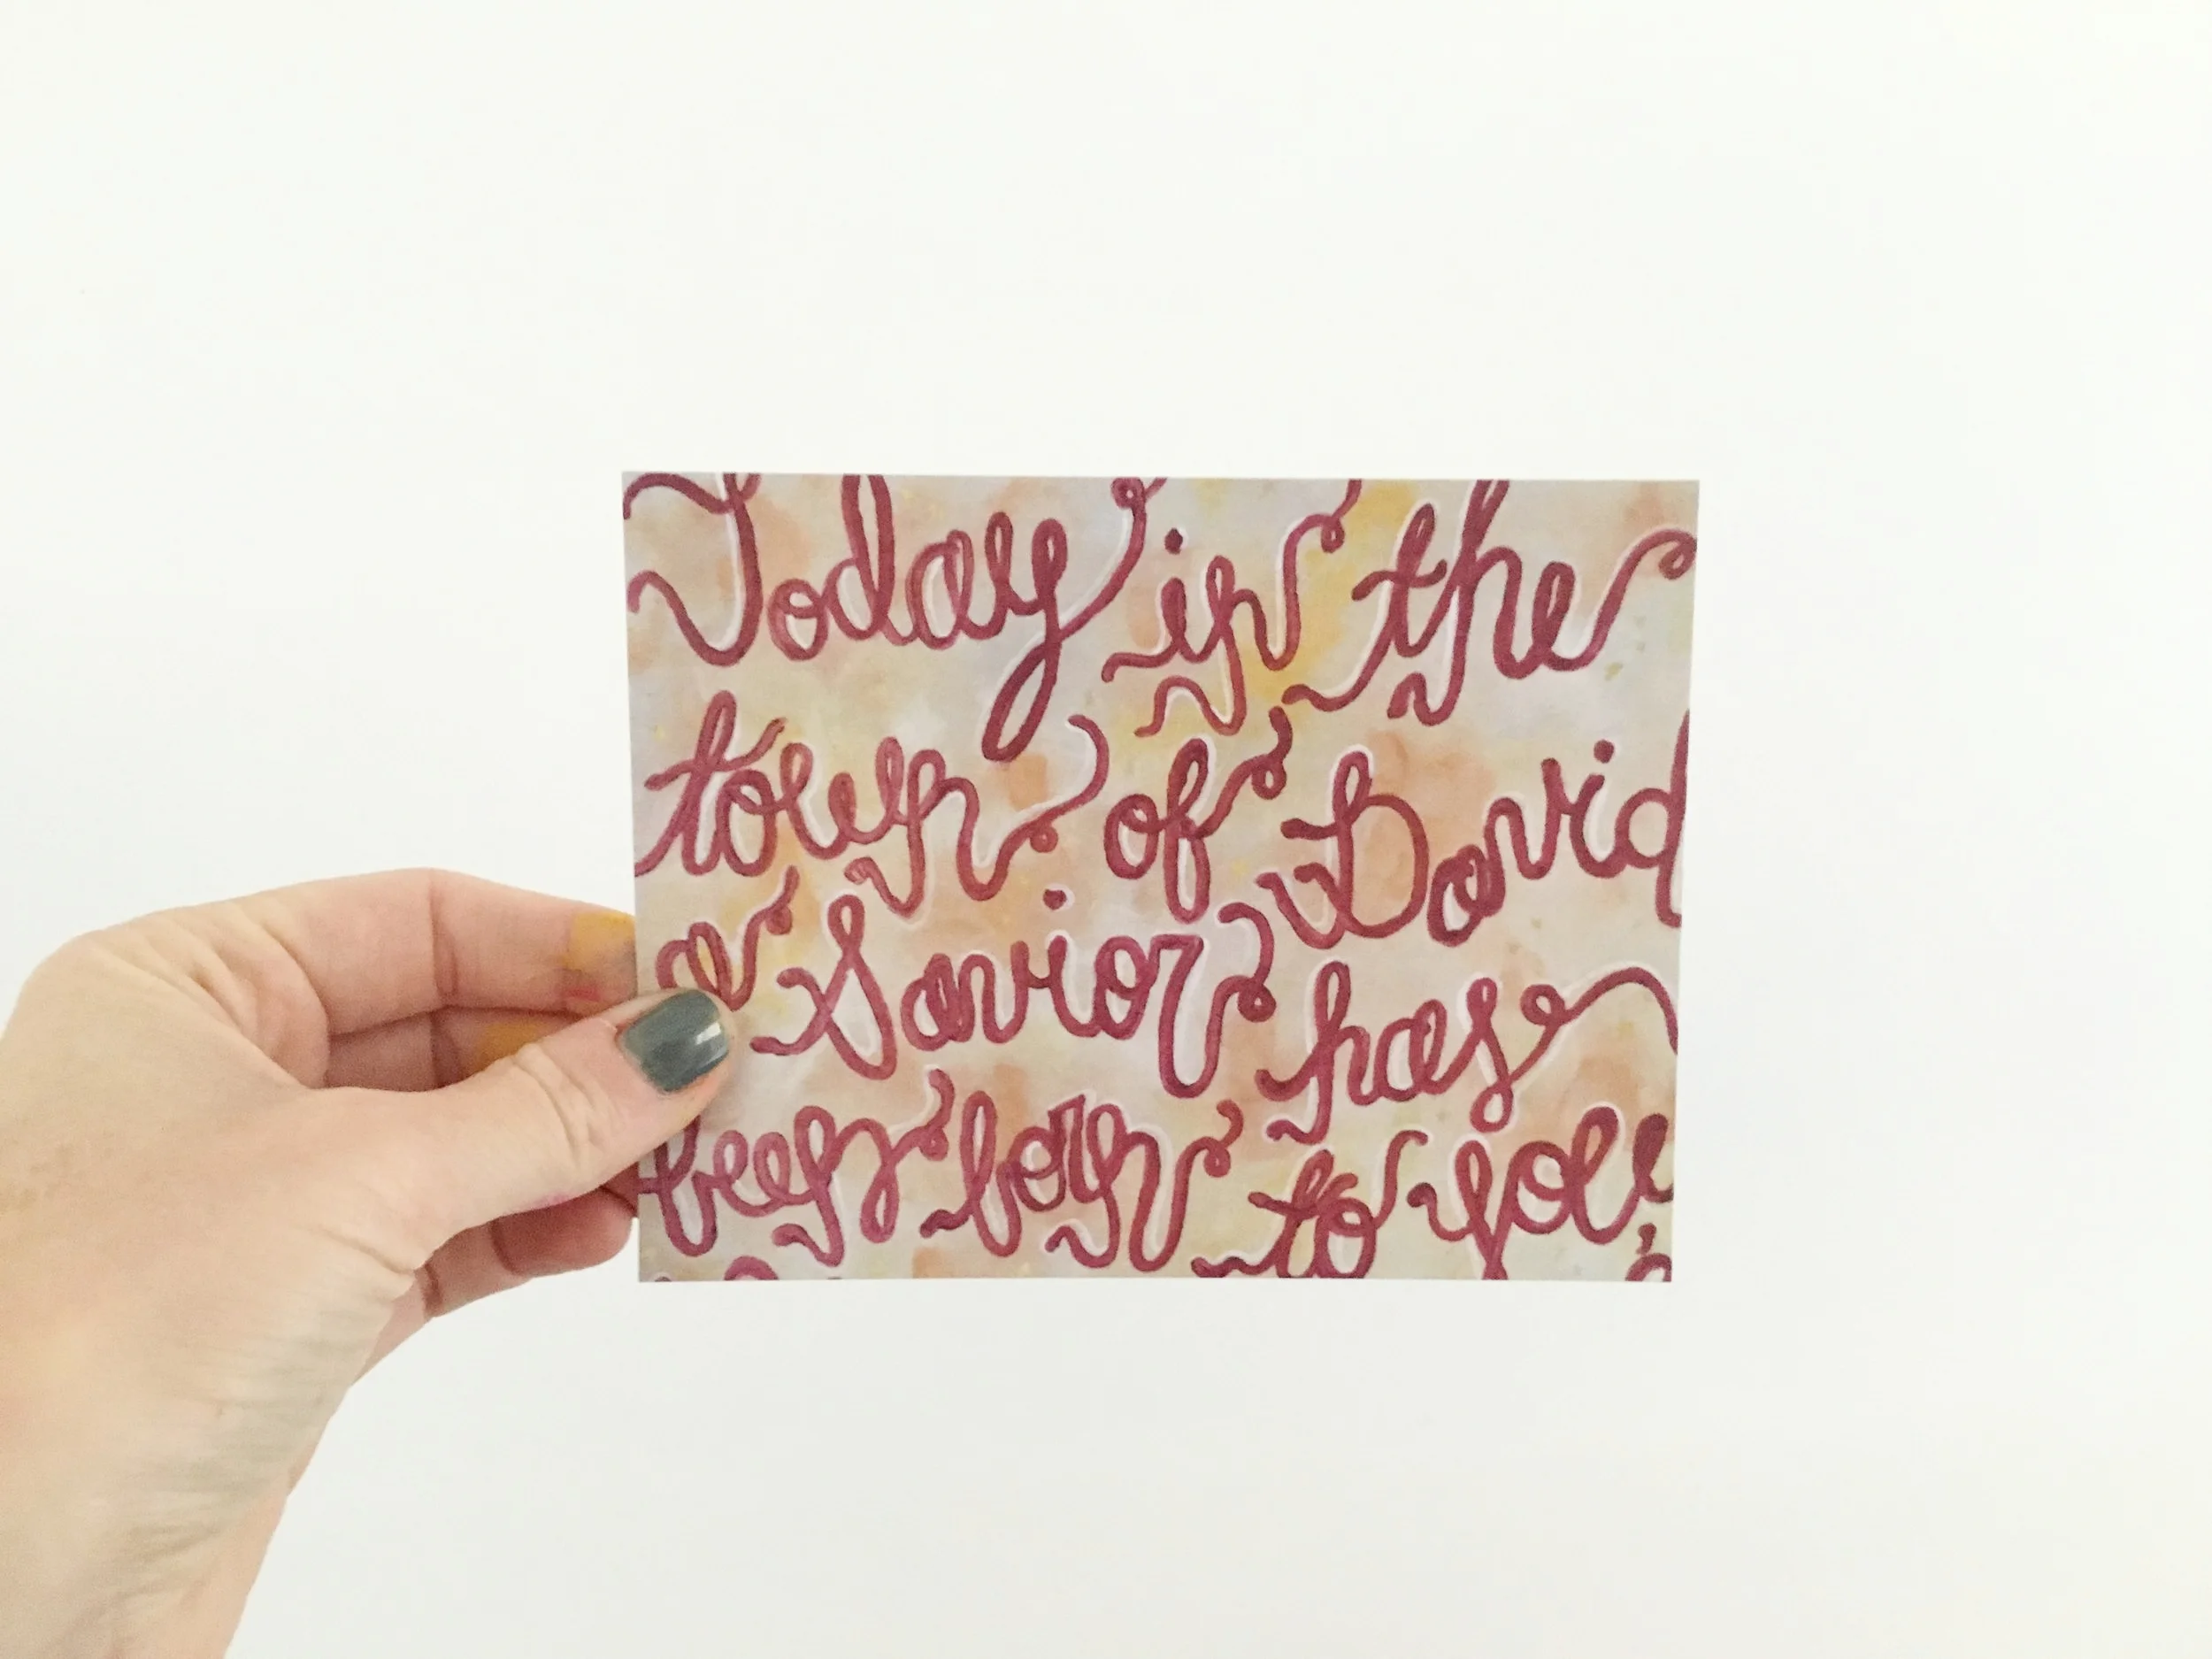 Today in the
town of David
a Savior has
been born to you;